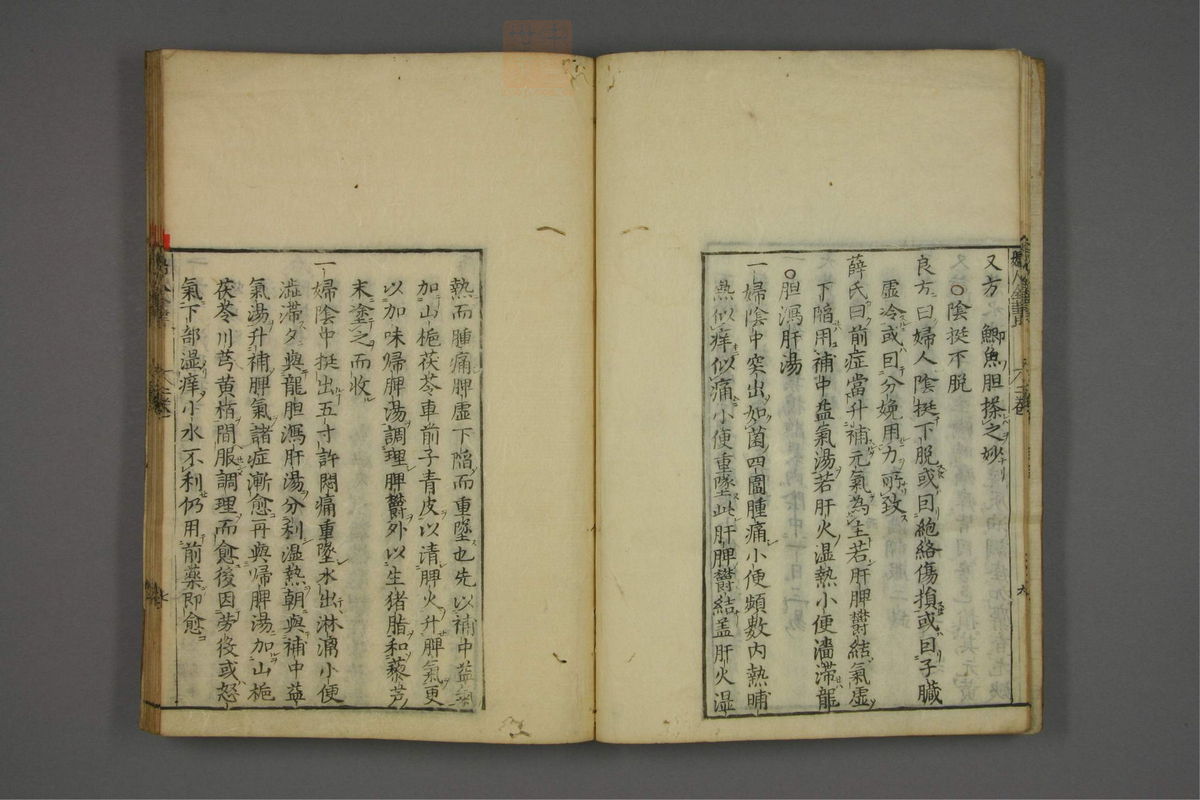 又方　鯽魚胆搽之妙
○陰挺不脫
良方曰婦人陰挺下脫或曰胞絡傷損或曰子臟
虛冷或曰分娩用力所致
薛氏曰前症當升補元氣為主若肝脾欝結氣虛
下陥用補中益氣湯若肝火湿熱小便濇滯龍
○胆瀉肝湯
一婦陰中突出如菌四圍腫痛小便頻數內熱晡
熱似痒似痛小便重墜此肝脾欝結盖肝火湿
熱而腫痛脾虛下陥而重墜也先以補中益氣
加山梔茯苓車前子青皮以清脾火升脾氣更
以加味帰脾湯調理脾欝外以生猪脂和藜芦
末塗之而收
一婦陰中挺出五寸許悶痛重墜水出淋漓小便
澁滯夕與龍胆瀉肝湯分利湿熱朝與補中益
氣湯升補脾氣諸症漸愈再與帰脾湯加山梔
茯苓川芎黃栢間服調理而愈後因劳役或怒
氣下部湿痒小水不利仍用前藥即愈